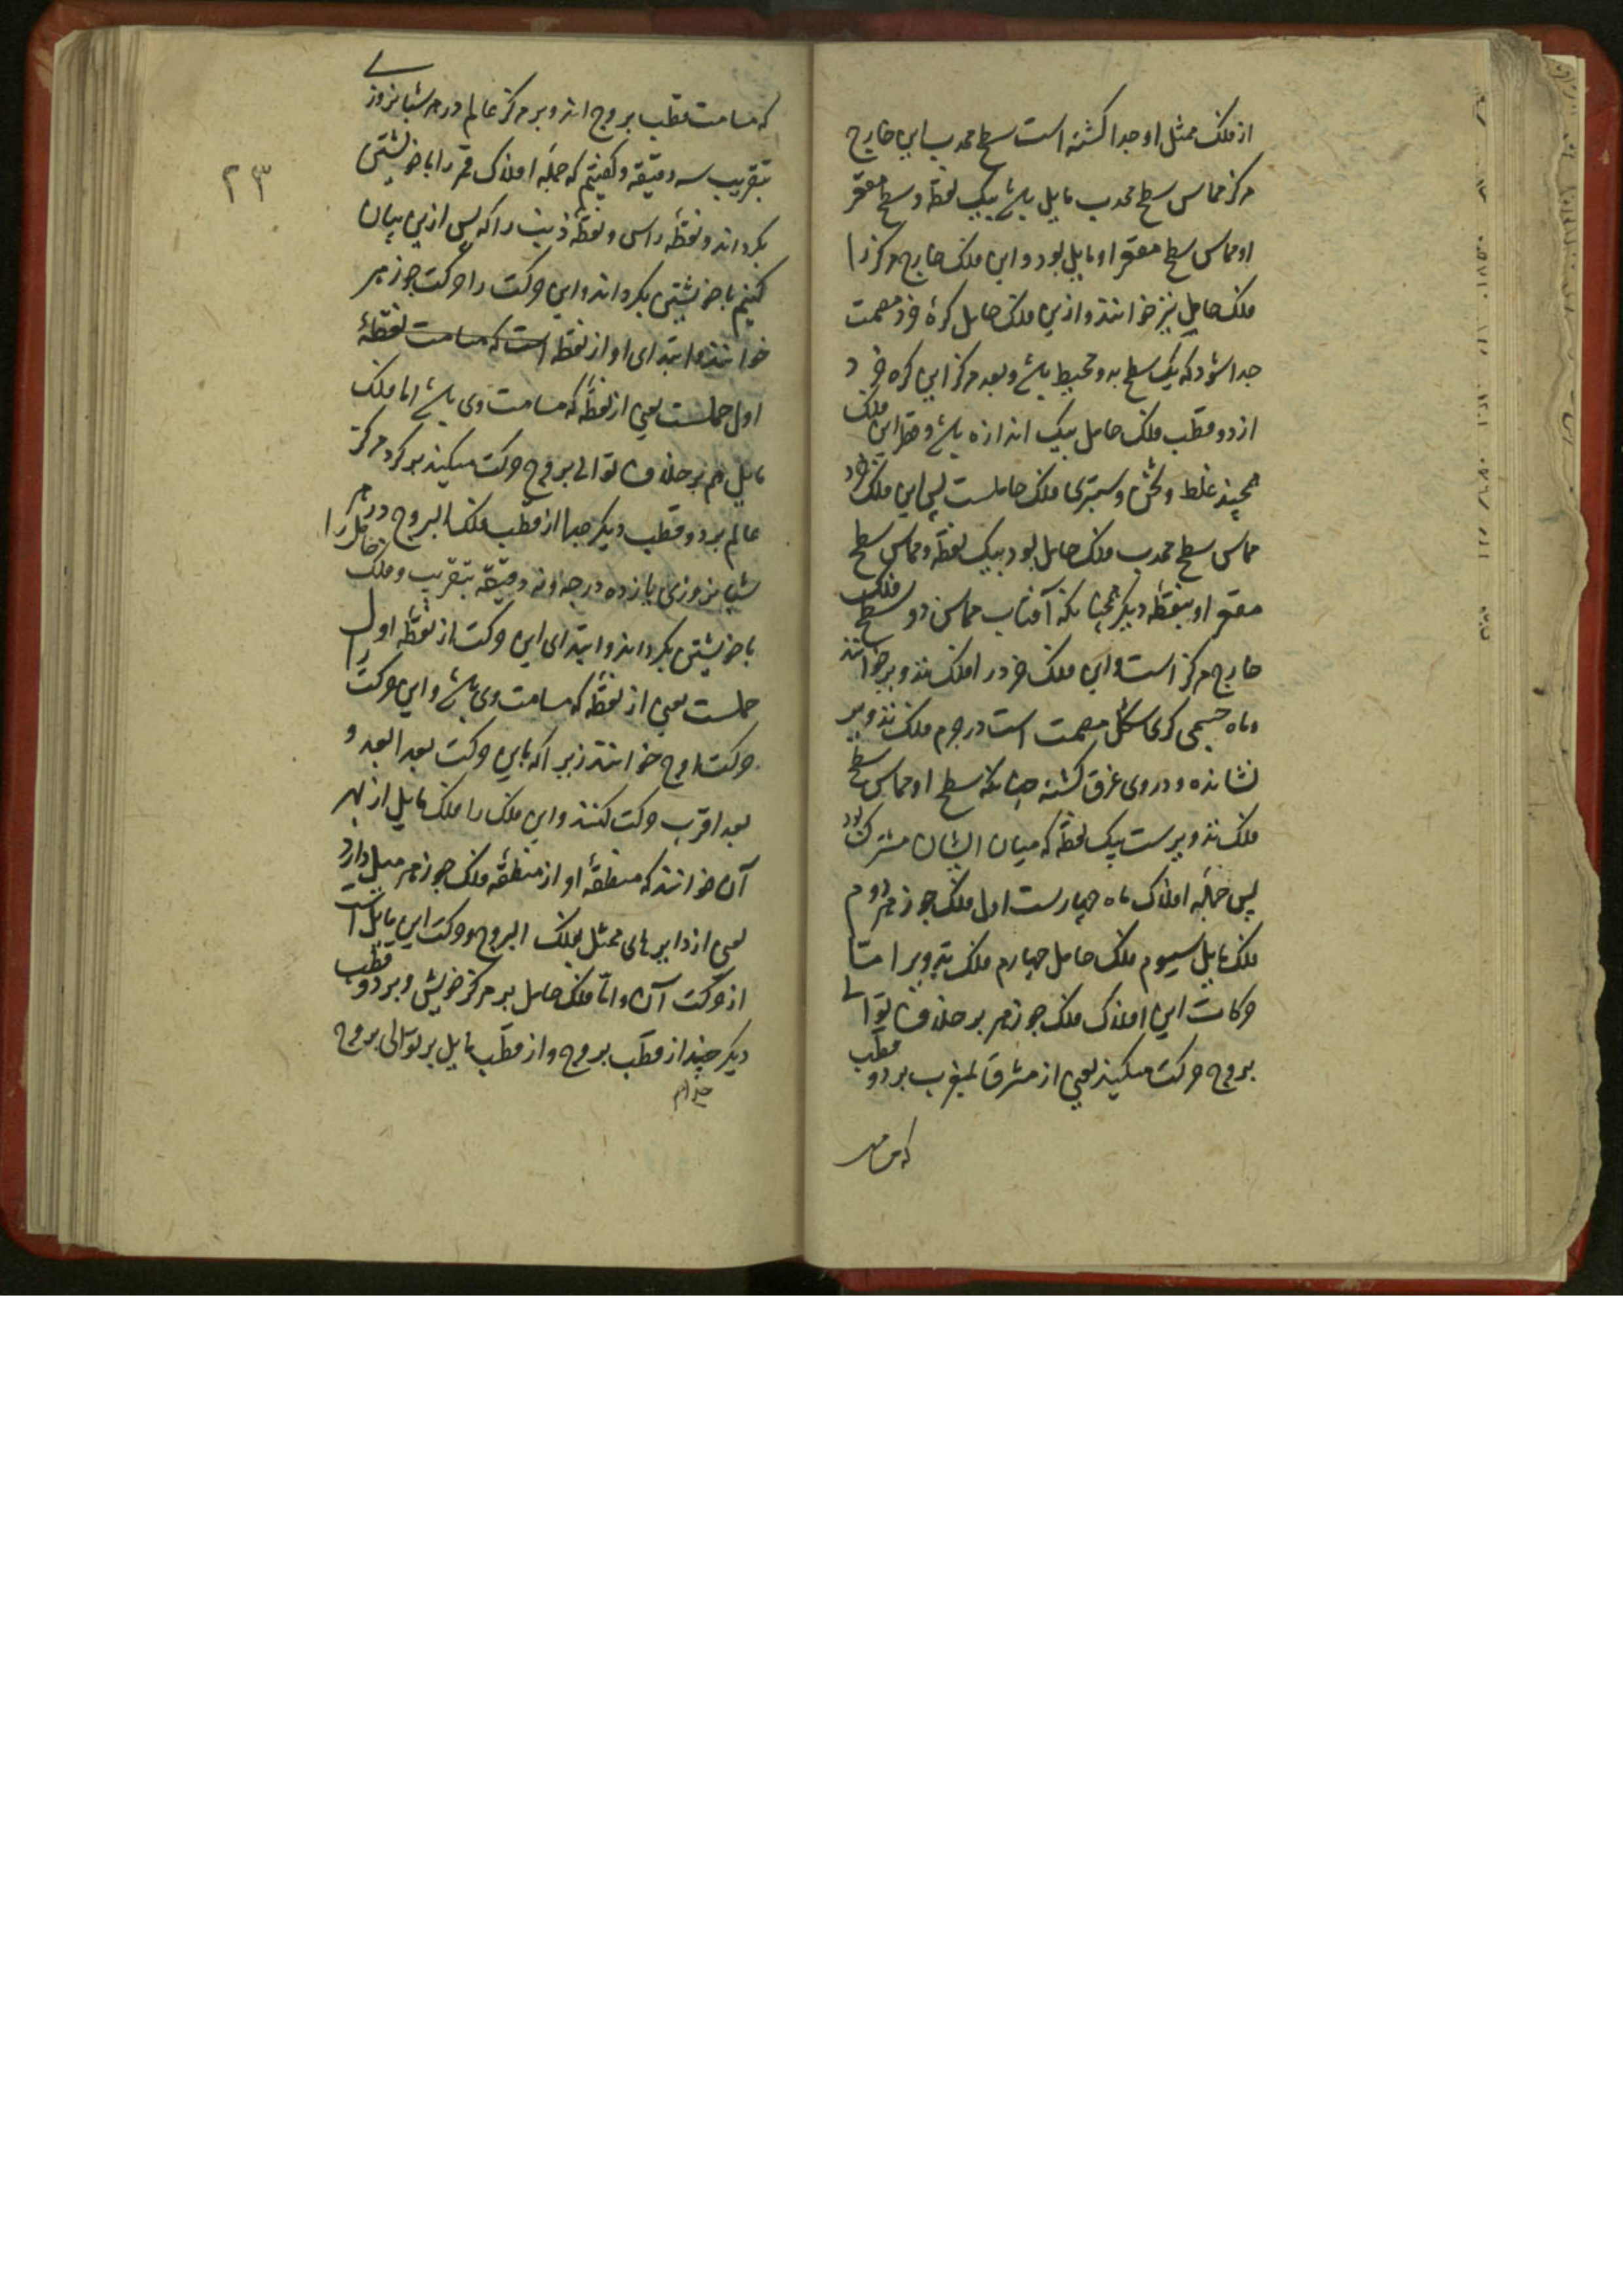 از فلک ممثل او جدا کشته است سطح محدب این خارج
مرکز مماس سطح محدب مایل باشد بیک نقطه و سطح مقعر
او مماس سطح مقعر او مایل بود و این فلک خارج مرکز را
فلک حامل نیز خوانند و ازین فلک حامل کرهٔ خرد مصمت
جدا شود که یک سطح بدو محیط باشد و بعد مرکز این کره خرد
از دو قطب فلک حامل بیک اندازه باشد و قطر این فلک
همچند غلظ و ثخن و سبتری فلک حاملست پس این فلک خرد
مماس سطح محدب فلک حامل بود بیک نقطه و مماس سطح
مقعر او بنقطه دیکر همچنانکه آفتاب مماس دو سطح فلک
خارج مرکز است و این فلک خرد را فلک تدویر خوانند
و ماه جسمی کری شکل مصمت است در جرم فلک تدویر
نشانده و در وی غرق کشته چنانکه سطح او مماس سطح
فلک تدویرست بیک نقطه که میان ایشان مشترک بود
پس جمله افلاک ماه چهارست اول فلک جوزهر دوم
فلک مایل سیوم فلک حامل چهارم فلک تدویر امتا
حرکات این افلاک فلک جوزهر بر خلاف توالی
بروج حرکت میکند یعنی از مشرق بمغرب بر دو قطب
که مسامت
۲۳
که مسامت قطب بروج اند و بر مرکز عالم در هر شبانروزی
بتقریب سه دقیقه و کفتیم که جمله افلاک قمر را با خویشتن
بکرداند و نقطهٔ راس و نقطهٔ ذنب را که پس ازین بیان
کنیم با خویشتن بکرداند و این حرکت را حرکت جوزهر
خوانند و ابتدای او از نقطه است که مسامت نقطهٔ
اول حملست یعنی از نقطهٔ که مسامت وی باشد اما فلک
مایل هم بر خلاف توالی بروج حرکت میکند بر کرد مرکز
عالم بر دو قطب دیکر جدا از قطب فلک البروج در هر
شبانروزی یازده درجه و نه دقیقه بتقریب و فلک حامل را
با خویشتن بکرداند و ابتدای این حرکت از نقطهٔ اول
حملست یعنی از نقطهٔ که مسامت وی باشد و این حرکت را
حرکت اوج خوانند زیرا که باین حرکت بعد ابعد و
بعد اقرب حرکت کنند و این فلک را فلک مایل از بهر
آن خوانند که منطقهٔ او از منطقهٔ فلک جوزهر میل دارد
یعنی از دایرهای ممثل بفلک البروج و حرکت این مایل است
از حرکت آن و امّا فلک حامل بر مرکز خویش و بر دو قطب
دیکر جند از قطب بروج و از قطب مایل بر توالی بروج